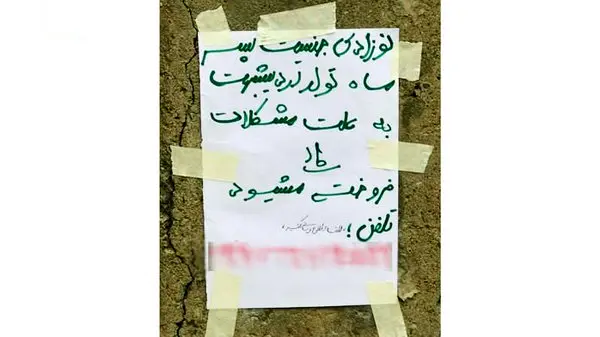 نوزادی جنسیت پسر
ماه تولد اردیبهشت
به علت مشکلات
فروخته میشود
تلفن :